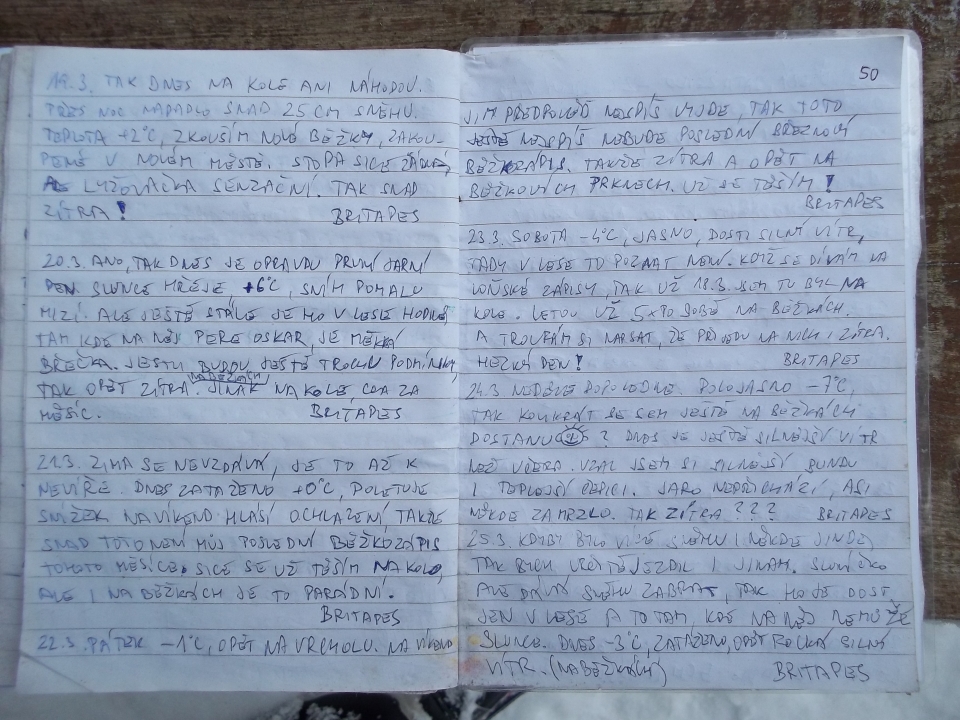 19.3. TAK DNES NA KOLE ANI NÁHODOU.
PŘES NOC NAPADLO SNAD 25 CM SNĚHU.
TEPLOTA +2°C, ZKOUŠÍM NOVÉ BĚŽKY, ZAKOU-
PENÉ V NOVÉM MĚSTĚ. STOPA SICE ŽÁDNÁ,
ALE LYŽOVAČKA SENZAČNÍ. TAK SNAD
ZÍTRA! BRITAPES
20.3. ANO, TAK DNES JE OPRAVDU PRVNÍ JARNÍ
DEN. SLUNCE HŘEJE +6°C, SNÍH POMALU
MIZÍ. ALE JEŠTĚ STÁLE JE HO V LESE HODNĚ
TAM KDE NA NĚJ PERE OSKAR, JE MĚKKÁ
BŘEČKA. JESTLI BUDOU JEŠTĚ TROCHU PODMÍNKY,
TAK OPĚT ZÍTRA NA BĚŽKÁCH. JINAK NA KOLE, CCA ZA
MĚSÍC. BRITAPES
21.3. ZIMA SE NEVZDÁVÁ, JE TO AŽ K
NEVÍŘE. DNES ZATAŽENO +0°C, POLETUJE
SNÍŽEK NA VÍKEND HLÁSÍ OCHLAZENÍ TAKŽE
SNAD TOTO NENÍ MŮJ POSLEDNÍ BĚŽKOZÁPIS
TOHOTO MĚSÍCE. SICE SE UŽ TĚŠÍM NA KOLO,
ALE I NA BĚŽKÁCH JE TO PARÁDNÍ.
BRITAPES
22.3. PÁTEK -1°C, OPĚT NA VRCHOLU. NA VÍKEND
50
JIM PŘEDPOVĚĎ NEJSPÍŠ VYJDE, TAK TOTO
JEŠTĚ NEJSPÍŠ NEBUDE POSLEDNÍ BŘEZNOVÝ
BĚŽKOZÁPIS. TAKŽE ZÍTRA A OPĚT NA
BĚŽKOVÝCH PRKNECH. UŽ SE TĚŠÍM!
BRITAPES
23.3. SOBOTA -4°C, JASNO, DOSTI SILNÝ VÍTR,
TADY V LESE TO POZNAT NENÍ. KDYŽ SE DÍVÁM NA
LOŇSKÉ ZÁPISY, TAK UŽ 18.3. JSEM TU BYL NA
KOLE. LETOS UŽ 5x PO SOBĚ NA BĚŽKÁCH.
A TROUFÁM SI NAPSAT, ŽE PŘIJEDU NA NICH I ZÍTRA.
HEZKÝ DEN! BRITAPES
24.3. NEDĚLE DOPOLEDNE. POLOJASNO -7°C,
TAK KOLIKRÁT SE SEM JEŠTĚ NA BĚŽKÁCH
DOSTANU? DNES JE JEŠTĚ SILNĚJŠÍ VÍTR
NEŽ VČERA. VZAL JSEM SI SILNĚJŠÍ BUNDU
I TEPLEJŠÍ ČEPICI. JARO NEPŘICHÁZÍ, ASI
NĚKDE ZAMRZLO. TAK ZÍTRA??? BRITAPES
25.3. KDYBY BYLO VÍCE SNĚHU I NĚKDE JINDE,
TAK BYCH URČITĚ JEZDIL I JINAM. SLUNÍČKO
ALE DÁVÁ SNĚHU ZABRAT, TAK HO JE DOST
JEN V LESE A TO TAM, KDE NA NĚJ NEMŮŽE
SLUNCE. DNES -3°C, ZATAŽENO, OPĚT TROCHU SILNÝ
VÍTR. (NA BĚŽKÁCH) BRITAPES